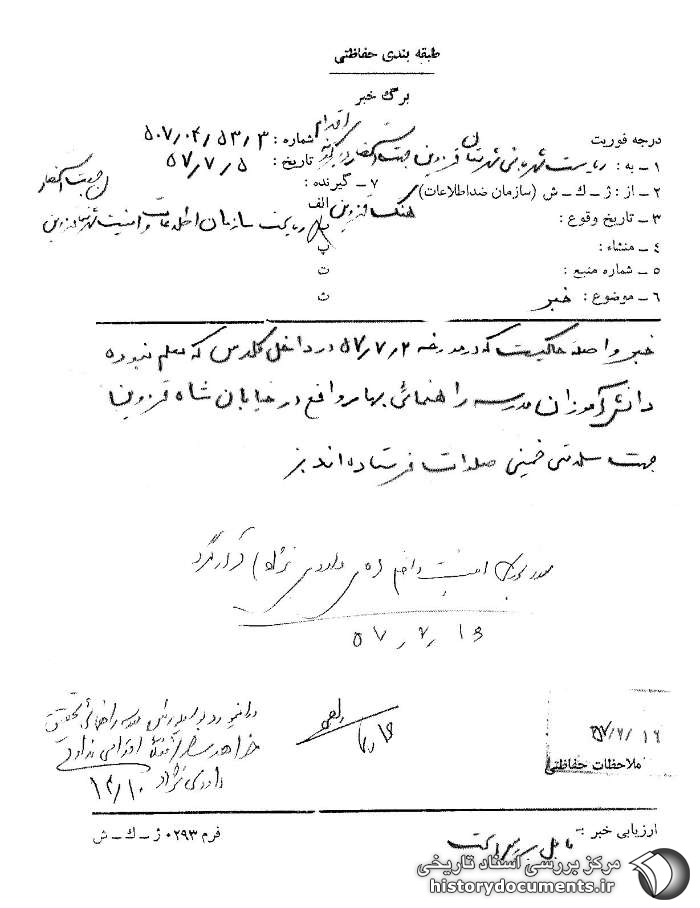 طبقه بندی حفاظتی
برگ خبر
درجه فوریت
شماره : ۵۰۷٫۰۴٫۵۳٫۳
۱ - به : ریاست شهربانی شهرستان قزوین جهت استحضار
تاریخ : ۵۷٫۷٫۵
۲ - از : ژ - ك - ش (سازمان ضداطلاعات)
۷ - گیرنده :
جهت استحضار
۳ - تاریخ وقوع :
الف هنگ قزوین
۴ - منشاء :
ب ریاست سازمان اطلاعات و امنیت شهرستان قزوین
پ
۵ - شماره منبع :
ت
۶ - موضوع : خبر
ث
خبر واصله حاکیست که در مورخه ۵۷٫۷٫۲ در داخل کلاس که معلم نبوده
دانش آموزان مدرسه راهنمائی بهار واقع در خیابان شاه قزوین
جهت سلامتی خمینی صلوات فرستاده اند
داخلی داودی نژاد) قرار گیرد
مدرسه راهنمائی
اقدامی ندارد
داودی نژاد
ملاحظات حفاظتی
ارزیابی خبر :-
فرم ۰۲۹۳ ژ - ك - ش
مرکز بررسی اسناد تاریخی
historydocuments.ir